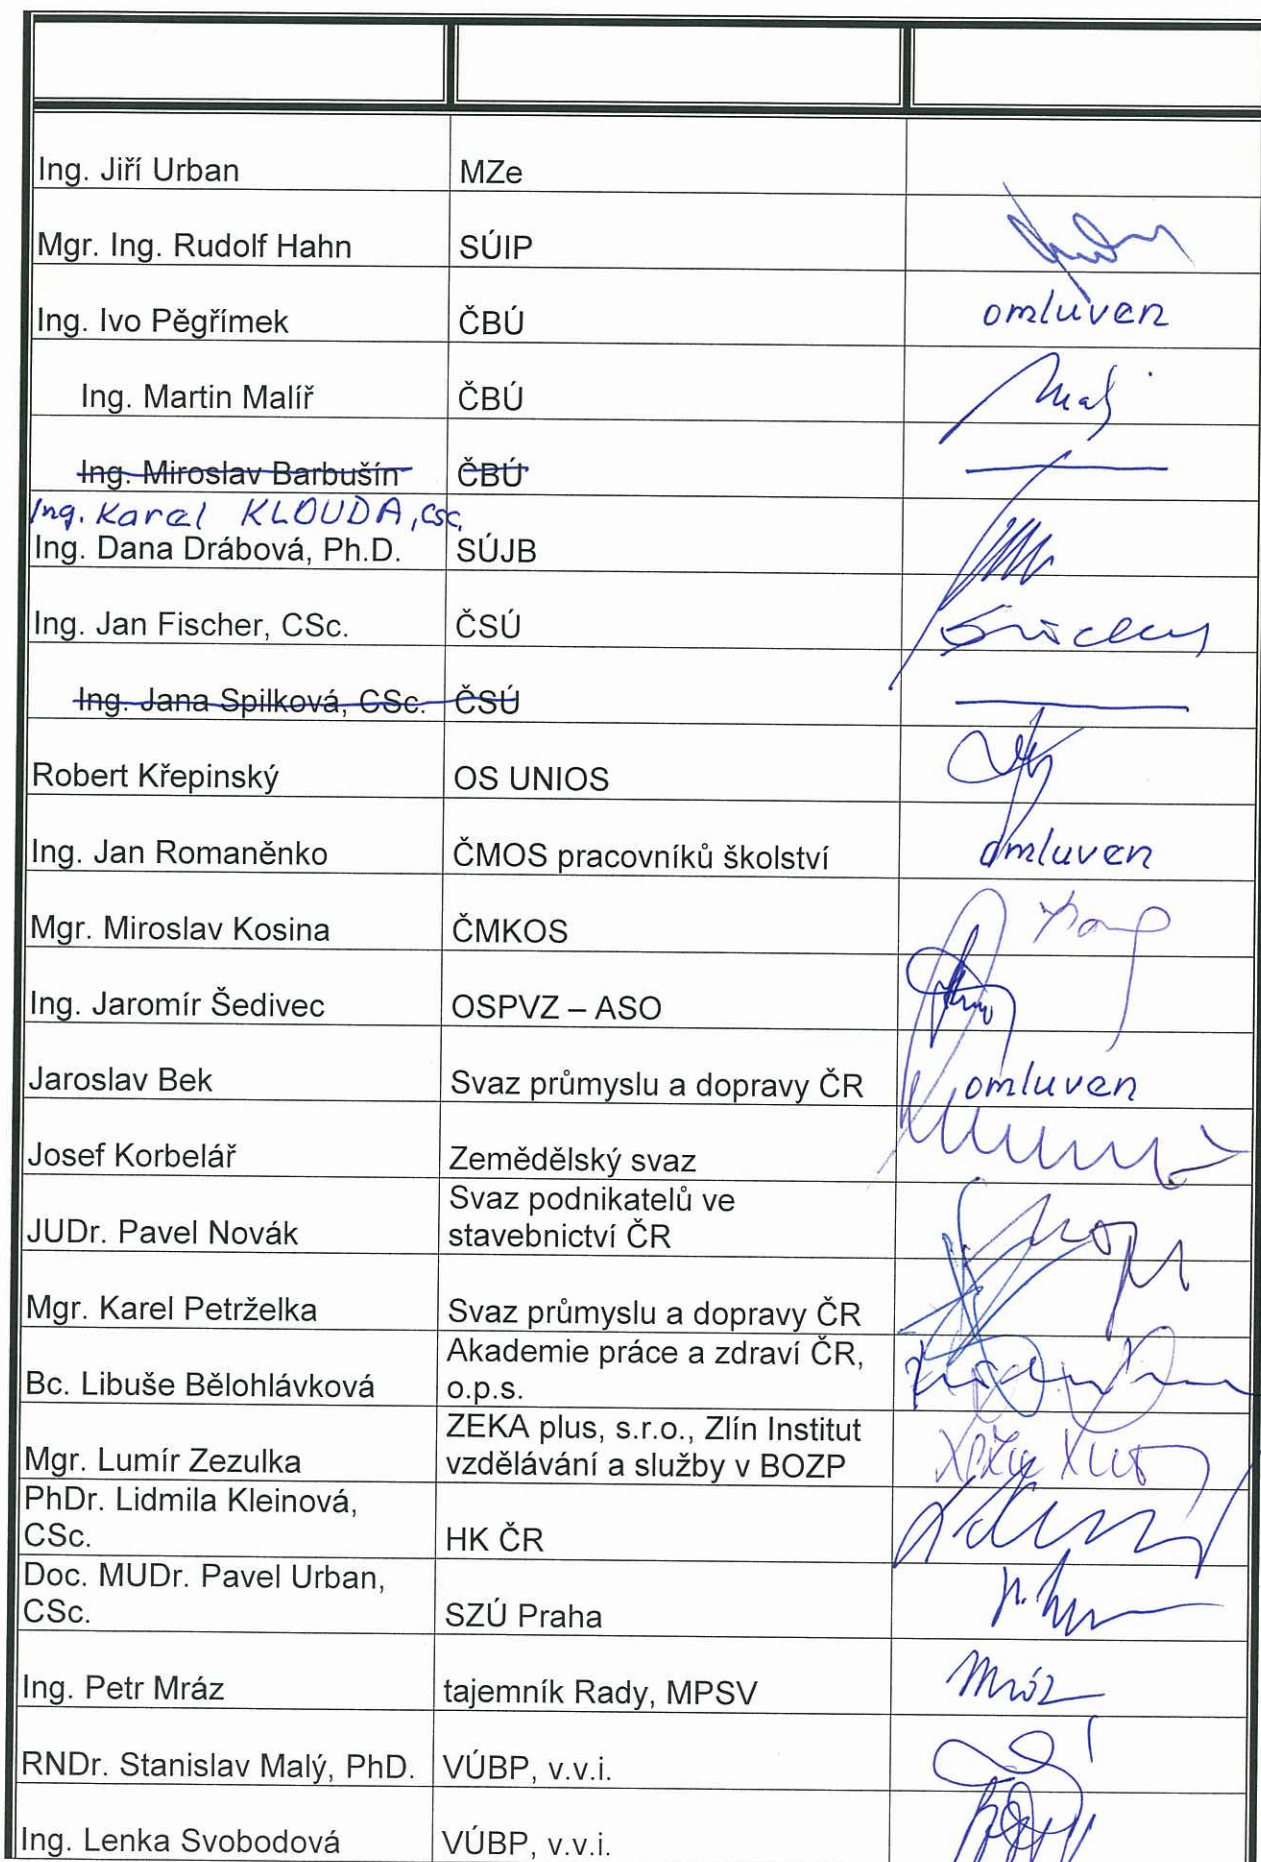 Ing. Jiří Urban MZe
Mgr. Ing. Rudolf Hahn SÚIP
Ing. Ivo Pěgřímek ČBÚ omluven
Ing. Martin Malíř ČBÚ
Ing. Miroslav Barbušín ČBÚ
Ing. Karel KLOUDA, CSc.
Ing. Dana Drábová, Ph.D. SÚJB
Ing. Jan Fischer, CSc. ČSÚ
Ing. Jana Spilková, CSc. ČSÚ
Robert Křepinský OS UNIOS
Ing. Jan Romaněnko ČMOS pracovníků školství omluven
Mgr. Miroslav Kosina ČMKOS
Ing. Jaromír Šedivec OSPVZ – ASO
Jaroslav Bek Svaz průmyslu a dopravy ČR omluven
Josef Korbelář Zemědělský svaz
JUDr. Pavel Novák Svaz podnikatelů ve
stavebnictví ČR
Mgr. Karel Petrželka Svaz průmyslu a dopravy ČR
Bc. Libuše Bělohlávková Akademie práce a zdraví ČR,
o.p.s.
Mgr. Lumír Zezulka ZEKA plus, s.r.o., Zlín Institut
vzdělávání a služby v BOZP
PhDr. Lidmila Kleinová,
CSc. HK ČR
Doc. MUDr. Pavel Urban,
CSc. SZÚ Praha
Ing. Petr Mráz tajemník Rady, MPSV Mráz
RNDr. Stanislav Malý, PhD. VÚBP, v.v.i.
Ing. Lenka Svobodová VÚBP, v.v.i.